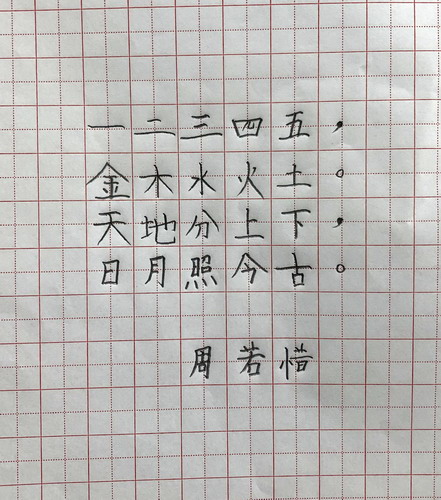 一二三四五，
金木水火土。
天地分上下，
日月照今古。
周若惜